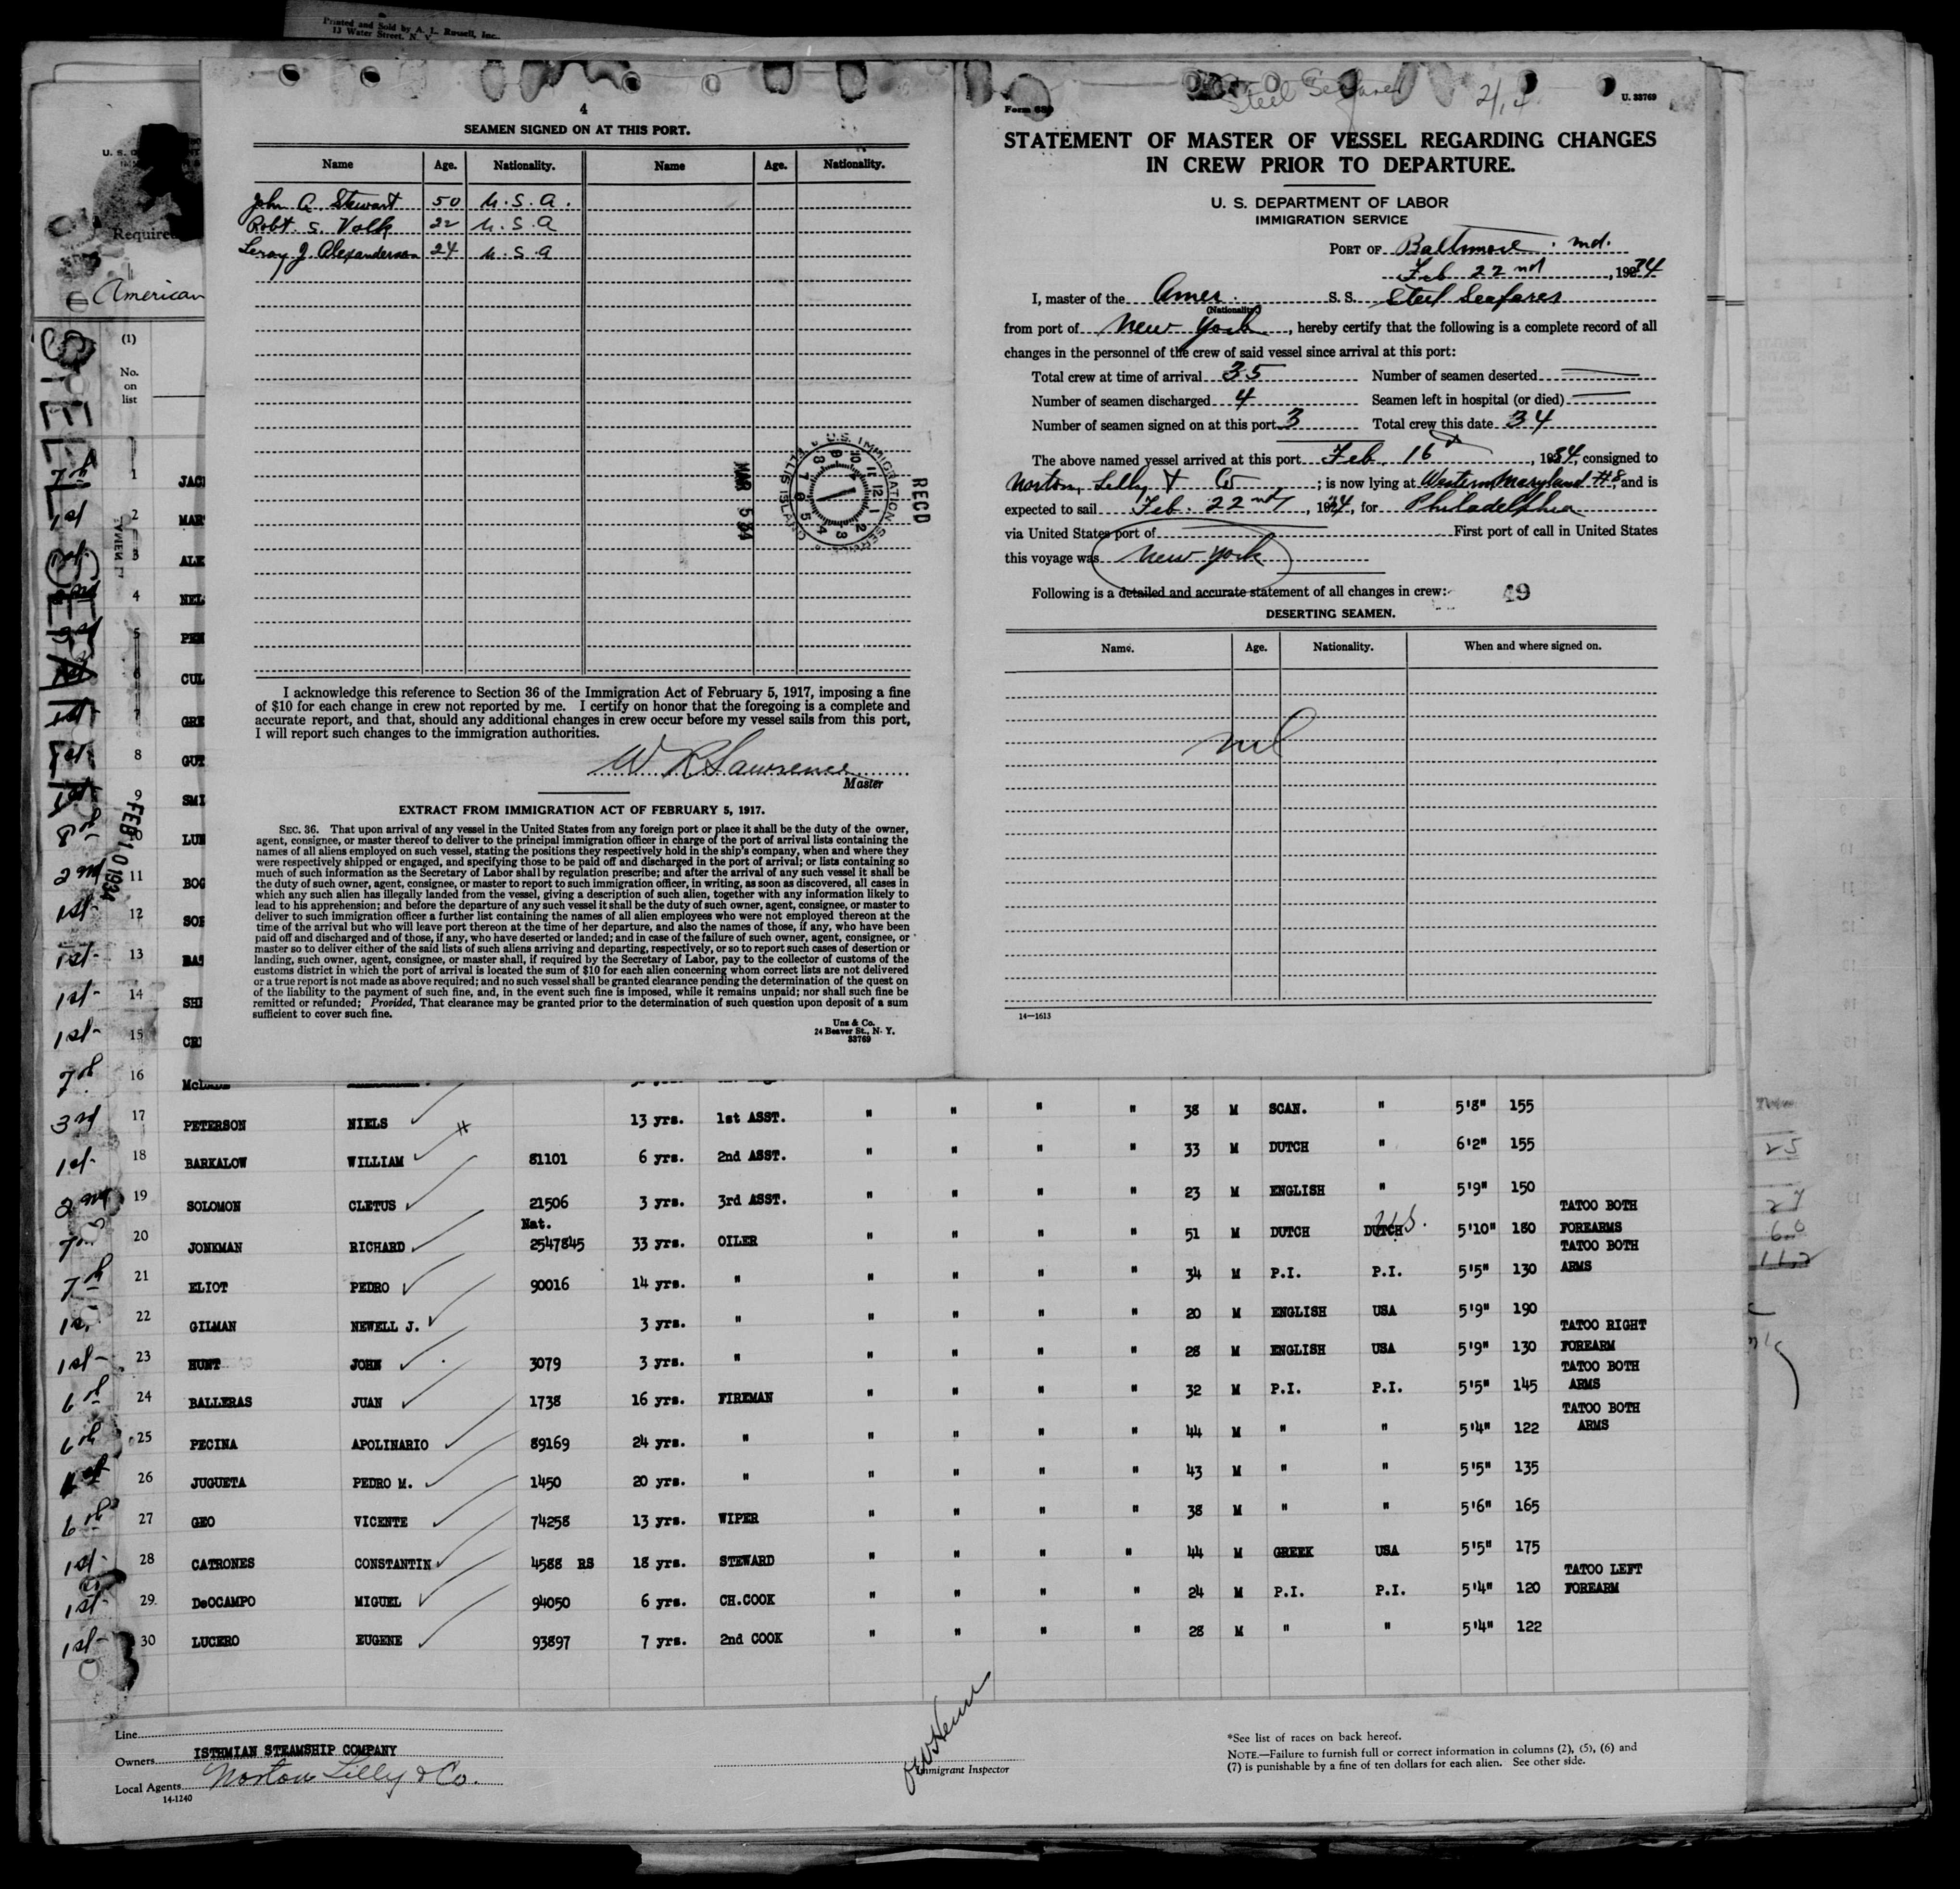 Printed and Sold by A. L. Russell, Inc.
13 Water Street, N. Y.
4
SEAMEN SIGNED ON AT THIS PORT.
Name Age. Nationality. Name Age. Nationality.
John A. Stewart 50 U.S.A.
Robt. S. Volk 22 U.S.A
Leroy J. Alexanderson 24 U.S.A
RECD
MAR 5 34
U.S. IMMIGRATION SERVICE ELLIS ISLAND
I acknowledge this reference to Section 36 of the Immigration Act of February 5, 1917, imposing a fine
of $10 for each change in crew not reported by me. I certify on honor that the foregoing is a complete and
accurate report, and that, should any additional changes in crew occur before my vessel sails from this port,
I will report such changes to the immigration authorities.
W R Lawrence
Master
EXTRACT FROM IMMIGRATION ACT OF FEBRUARY 5, 1917.
SEC. 36. That upon arrival of any vessel in the United States from any foreign port or place it shall be the duty of the owner,
agent, consignee, or master thereof to deliver to the principal immigration officer in charge of the port of arrival lists containing the
names of all aliens employed on such vessel, stating the positions they respectively hold in the ship's company, when and where they
were respectively shipped or engaged, and specifying those to be paid off and discharged in the port of arrival; or lists containing so
much of such information as the Secretary of Labor shall by regulation prescribe; and after the arrival of any such vessel it shall be
the duty of such owner, agent, consignee, or master to report to such immigration officer, in writing, as soon as discovered, all cases in
which any such alien has illegally landed from the vessel, giving a description of such alien, together with any information likely to
lead to his apprehension; and before the departure of any such vessel it shall be the duty of such owner, agent, consignee, or master to
deliver to such immigration officer a further list containing the names of all alien employees who were not employed thereon at the
time of the arrival but who will leave port thereon at the time of her departure, and also the names of those, if any, who have been
paid off and discharged and of those, if any, who have deserted or landed; and in case of the failure of such owner, agent, consignee, or
master so to deliver either of the said lists of such aliens arriving and departing, respectively, or so to report such cases of desertion or
landing, such owner, agent, consignee, or master shall, if required by the Secretary of Labor, pay to the collector of customs of the
customs district in which the port of arrival is located the sum of $10 for each alien concerning whom correct lists are not delivered
or a true report is not made as above required; and no such vessel shall be granted clearance pending the determination of the quest on
of the liability to the payment of such fine, and, in the event such fine is imposed, while it remains unpaid; nor shall such fine be
remitted or refunded; Provided, That clearance may be granted prior to the determination of such question upon deposit of a sum
sufficient to cover such fine.
Unz & Co.
24 Beaver St., N. Y.
33769
Form 689 Steel Seafarer 2/14 U. 33769
STATEMENT OF MASTER OF VESSEL REGARDING CHANGES
IN CREW PRIOR TO DEPARTURE.
U. S. DEPARTMENT OF LABOR
IMMIGRATION SERVICE
PORT OF Baltimore. md.
Feb 22nd, 1934
I, master of the Amer. S. S. Steel Seafarer
(Nationality)
from port of New York, hereby certify that the following is a complete record of all
changes in the personnel of the crew of said vessel since arrival at this port:
Total crew at time of arrival 35 Number of seamen deserted
Number of seamen discharged 4 Seamen left in hospital (or died)
Number of seamen signed on at this port 3 Total crew this date 34
The above named vessel arrived at this port Feb. 16th, 1934, consigned to
Norton, Lilly & Co; is now lying at Western Maryland #8, and is
expected to sail Feb. 22nd, 1934, for Philadelphia
via United States port of First port of call in United States
this voyage was New York
Following is a detailed and accurate statement of all changes in crew:
49
DESERTING SEAMEN.
Name. Age. Nationality. When and where signed on.
nil
14—1613
Required
American
(1)
No.
on
list
STEEL
FEB 10 1934
7th 1 JAC
1st 2 MAR
3 ALE
4 NEL
5 PEN
6 CUL
1st 7 GRE
1st 8 GUT
1st 9 SMI
10 LUN
2nd 11 BOG
1st 12 SOR
1st 13 BAT
1st 14 SHI
1st 15 CRI
7th 16
3rd 17 PETERSON NIELS 13 yrs. 1st ASST. " " " " 38 M SCAN. " 5'8" 155
1st 18 BARKALOW WILLIAM 81101 6 yrs. 2nd ASST. " " " " 33 M DUTCH " 6'2" 155
2nd 19 SOLOMON CLETUS 21506 3 yrs. 3rd ASST. " " " " 23 M ENGLISH " 5'9" 150
7th 20 JONKMAN RICHARD Nat. 2547845 33 yrs. OILER " " " " 51 M DUTCH DUTCH U.S. 5'10" 180 TATOO BOTH FOREARMS
7th 21 ELIOT PEDRO 90016 14 yrs. " " " " " 34 M P.I. P.I. 5'5" 130 TATOO BOTH ARMS
1st 22 GILMAN NEWELL J. 3 yrs. " " " " " 20 M ENGLISH USA 5'9" 190
1st 23 HUNT JOHN 3079 3 yrs. " " " " " 28 M ENGLISH USA 5'9" 130 TATOO RIGHT FOREARM
6th 24 BALLERAS JUAN 1738 16 yrs. FIREMAN " " " " 32 M P.I. P.I. 5'5" 145 TATOO BOTH ARMS
6th 25 PECINA APOLINARIO 89169 24 yrs. " " " " " 44 M " " 5'4" 122 TATOO BOTH ARMS
26 JUGUETA PEDRO M. 1450 20 yrs. " " " " " 43 M " " 5'5" 135
6th 27 GEO VICENTE 74258 13 yrs. WIPER " " " " 38 M " " 5'6" 165
1st 28 CATRONES CONSTANTIN 4588 RS 18 yrs. STEWARD " " " " 44 M GREEK USA 5'5" 175
1st 29 DeOCAMPO MIGUEL 94050 6 yrs. CH.COOK " " " " 24 M P.I. P.I. 5'4" 120 TATOO LEFT FOREARM
1st 30 LUCERO EUGENE 93897 7 yrs. 2nd COOK " " " " 28 M " " 5'4" 122
Line
Owners ISTHMIAN STEAMSHIP COMPANY
Local Agents Norton Lilly & Co.
14-1240
Immigrant Inspector
*See list of races on back hereof.
NOTE.—Failure to furnish full or correct information in columns (2), (5), (6) and
(7) is punishable by a fine of ten dollars for each alien. See other side.
25
27
60
112